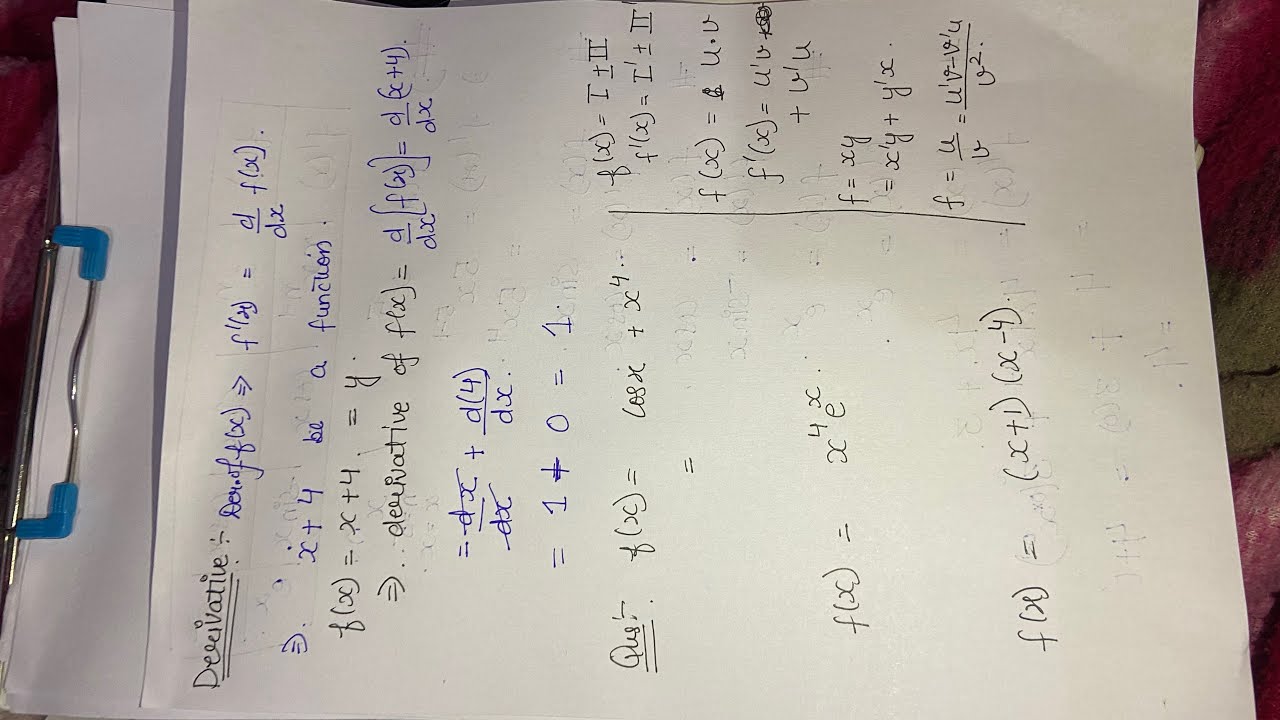 Derivative :- Der. of f(x) ⇒ f'(x) = d/dx f(x).
⇒. x + 4 be a function.
f(x) = x + 4. = y.
⇒. derivative of f(x) = d/dx [f(x)] = d/dx (x+4).
= dx/dx + d(4)/dx.
= 1 + 0 = 1.
Ques:-. f(x) = cosx + x⁴.
=
f(x) = x⁴eˣ.
f(x) = (x+1)(x-4).
f(x) = I ± II
f'(x) = I' ± II'
f(x) = u.v
f'(x) = u'v
+ v'u
f = xy
= x'y + y'x.
f = u/v = u'v-v'u/v².